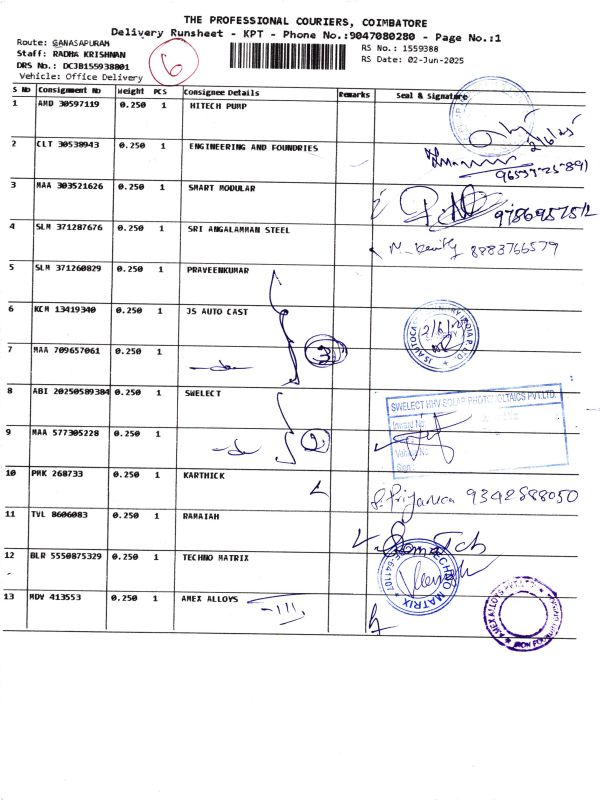 THE PROFESSIONAL COURIERS, COIMBATORE
Delivery Runsheet - KPT - Phone No.:9047080280 - Page No.:1
Route: GANASAPURAM
Staff: RADHA KRISHNAN
DRS No.: DCJB155938801
Vehicle: Office Delivery
6
RS No.: 1559388
RS Date: 02-Jun-2025
S No Consignment No Weight PCS Consignee Details Remarks Seal & Signature
1 AMD 30597119 0.250 1 HITECH PUMP
2/6/25
2 CLT 30538943 0.250 1 ENGINEERING AND FOUNDRIES
3 MAA 303521626 0.250 1 SMART MODULAR
4 SLM 371287676 0.250 1 SRI ANGALAMMAN STEEL
8883766579
5 SLM 371260829 0.250 1 PRAVEENKUMAR
6 KCM 13419340 0.250 1 JS AUTO CAST
2/6/25
7 MAA 709657061 0.250 1 -do-
3
8 ABI 20250589384 0.250 1 SWELECT
SWELECT HHV SOLAR PHOTOVOLTAICS PVT.LTD.
9 MAA 577305228 0.250 1 -do-
2
Sign:
10 PMK 268733 0.250 1 KARTHICK
9342588050
11 TVL 8606083 0.250 1 RAMAIAH
12 BLR 5550875329 0.250 1 TECHNO MATRIX
TECHNO MATRIX
13 MDV 413553 0.250 1 AMEX ALLOYS
AMEX ALLOYS PVT LTD